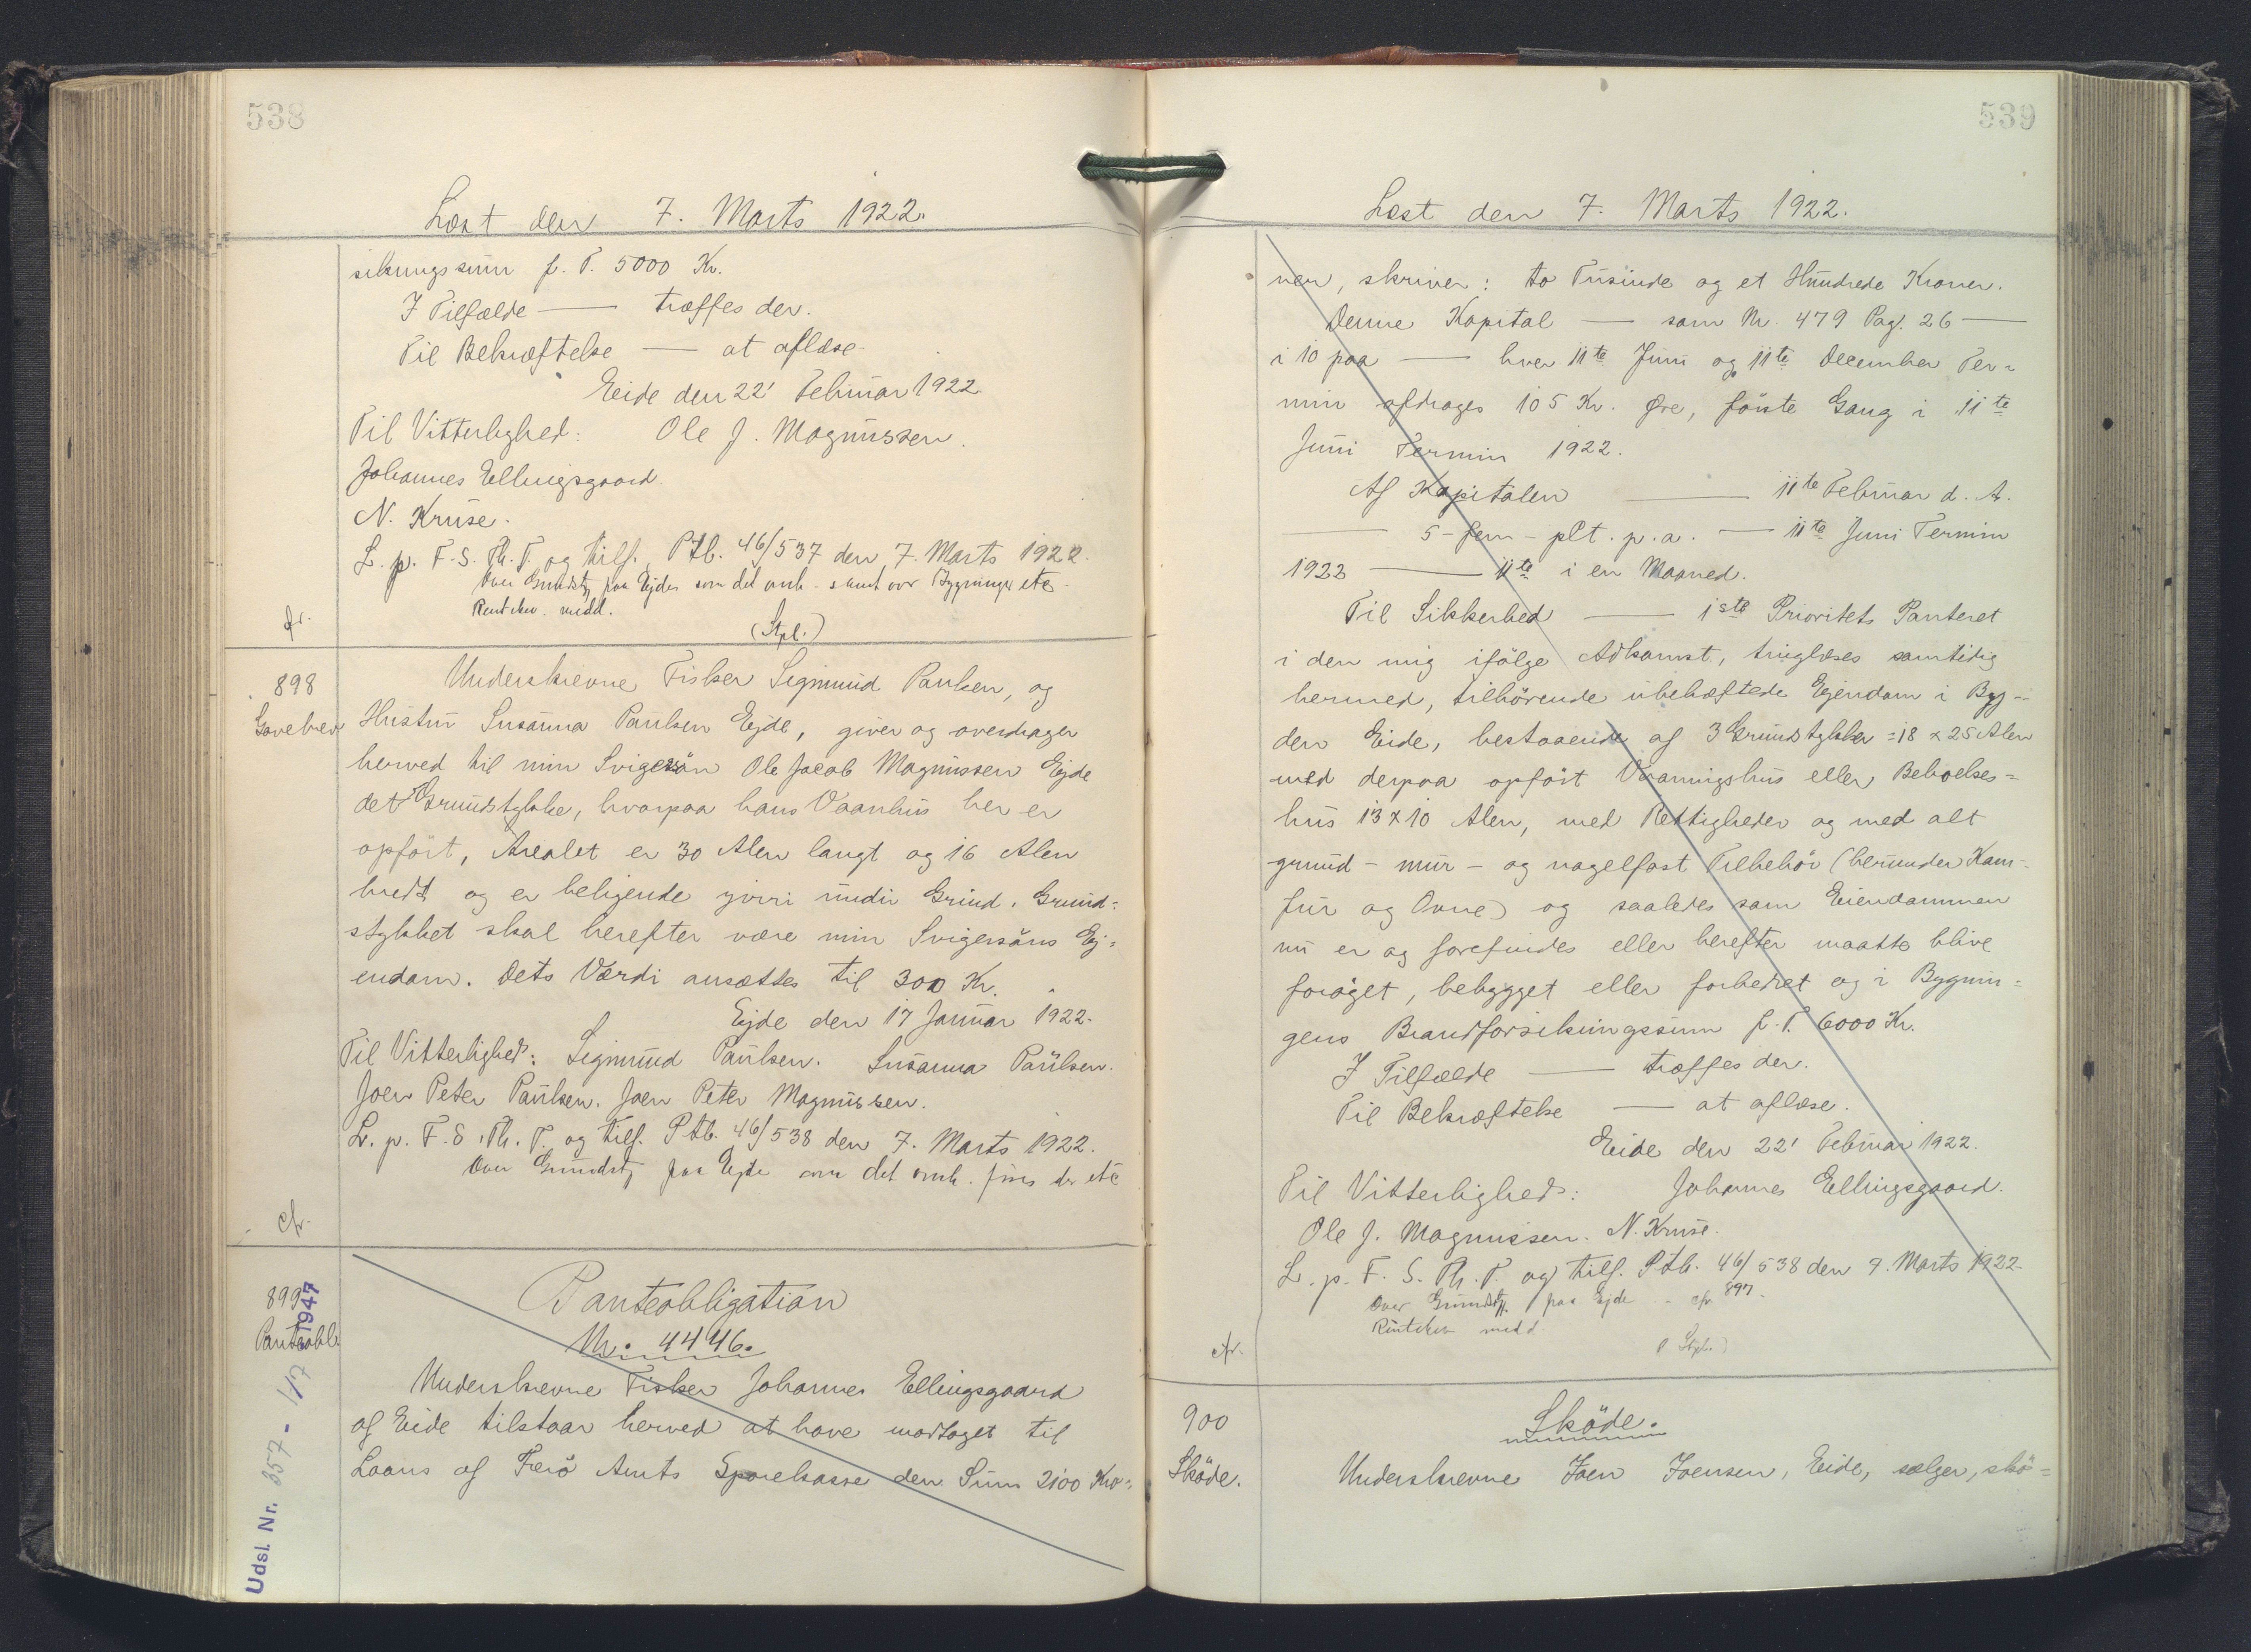 538
Læst den 7. Marts 1922.
sikringssum p. T. 5000 Kr.
I Tilfælde — træffes der.
Til Bekræftelse — at aflæse
Eide den 22' Februar 1922.
Til Vitterlighed: Ole J. Magnussen.
Johannes Ellingsgaard
N. Kruse.
L. p. F. S. Th. T. og tilf. Ptb. 46/537 den 7. Marts 1922.
Over Grundst. paa Ejde som det omh. samt ovr Bygninger etc.
medd.
(Stpl.)
cfr.
898
Gavebrev
Underskrevne Fisker Sigmund Paulsen, og
Hustru Susanna Paulsen Ejde, giver og overdrager
herved til min Svigersön Ole Jacob Magnussen Ejde
det Grundstykke, hvorpaa hans Vaanhus her er
opfört, Arealet er 30 Alen langt og 16 Alen
bredt og er beligende yviri undir Grind. Grund=
stykket skal herefter være min Svigersöns Ej=
endom. Dets Værdi ansættes til 300 Kr.
Ejde den 17 Januar 1922.
Til Vitterlighed: Sigmund Paulsen. Susanna Paulsen.
Joen Peter Paulsen. Joen Peter Magnussen.
L. p. F. S. Th. T. og tilf. Ptb. 46/538 den 7. Marts 1922.
Over Grundst. paa Ejde som det omh. etc
cfr.
899
Panteobl.
Udsl. Nr. 357 - 1/7 1947
Panteobligation
Nr. 4446.
Underskrevne Fisker Johannes Ellingsgaard
af Eide tilstaar herved at have modtaget til
Laans af Færö Amts Sparekasse den Sum 2100 Kro=
539
Læst den 7. Marts 1922.
ner, skriver: to Tusinde og et Hundrede Kroner.
Denne Kapital — som Nr. 479 Pag. 26 —
i 10 paa — hver 11te Juni og 11te December Ter=
min afdrages 105 Kr. Øre, förste Gang i 11te
Juni Termin 1922.
Af Kapitalen — 11te Februar d. A.
— 5 - fem - pCt. p. a. — 11te Juni Termin
1922 — 11te i en Maaned.
Til Sikkerhed — 1ste Prioritets Panteret
i den mig ifölge Adkomst, tinglæses samtidig
hermed, tilhörende ubehæftede Ejendom i Byg=
den Eide, bestaaende af 3 Grundstykker = 18 x 25 Alen
med derpaa opfört Vaaningshus eller Beboelses=
hus 13 x 10 Alen, med Rettigheder og med alt
grund - mur - og nagelfast Tilbehör (herunder Kom-
fur og Ovne) og saaledes som Eiendommen
nu er og forefindes eller herefter maatte blive
foröget, bebygget eller forbedret og i Bygnin=
gens Brandforsikringssum p. T. 6000 Kr.
I Tilfælde — træffes der.
Til Bekræftelse — at aflæse.
Eide den 22' Februar 1922.
Til Vitterlighed: Johannes Ellingsgaard.
Ole J. Magnussen. N. Kruse.
L. p. F. S. Th. T. og tilf. Ptb. 46/538 den 9. Marts 1922.
Over Grundst. paa Ejde - cfr. 897.
medd.
(Stpl.)
cfr.
900
Sköde.
Sköde.
Underskrevne Joen Joensen, Eide, sælger, skö=